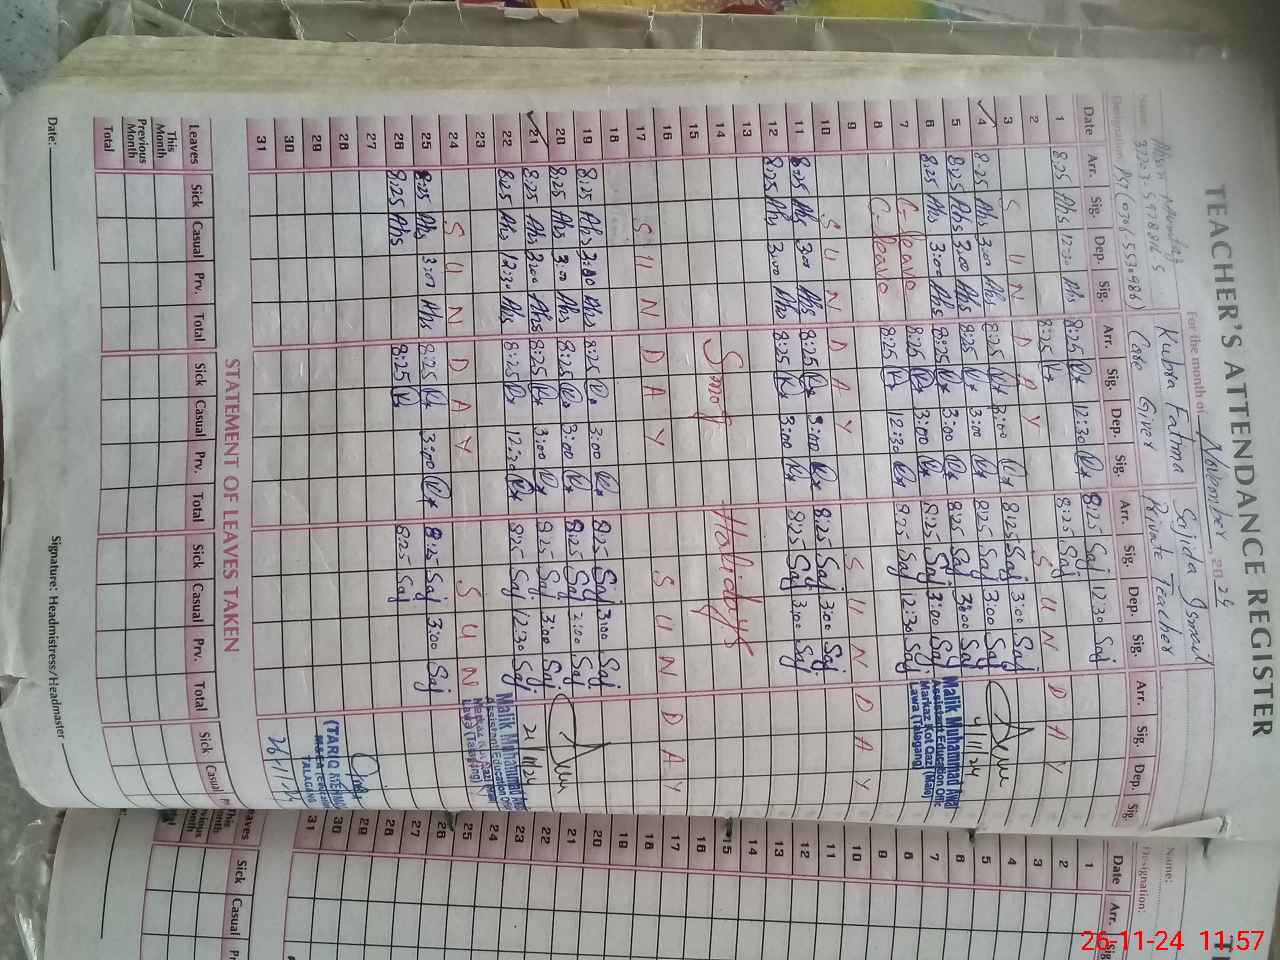 TEACHER'S ATTENDANCE REGISTER
For the month of November, 2024
Name: Ahsan Kubra Fatima Sajida Ismail
Designation: Care Giver Private Teacher
Date Arr. Sig. Dep. Sig. Arr. Sig. Dep. Sig. Arr. Sig. Dep. Sig. Arr. Sig. Dep. Sig.
1 8:25 Ahs 12:30 Ahs 8:25 12:30 8:25 Saj 12:30 Saj
2 8:25 8:25 Saj
3 S U N D A Y S U N D A Y
4 8:25 Ahs 3:00 Ahs 8:25 3:00 8:25 Saj 3:00 Saj
5 8:25 Ahs 3:00 Ahs 8:25 3:00 8:25 Saj 3:00 Saj
6 8:25 Ahs 3:00 Ahs 8:25 3:00 8:25 Saj 3:00 Saj
7 C-leave 8:25 3:00 8:25 Saj 3:00 Saj
8 C-leave 8:25 12:30 8:25 Saj 12:30 Saj
9
10 S U N D A Y S U N D A Y
11 8:25 Ahs 3:00 Ahs 8:25 3:00 8:25 Saj 3:00 Saj
12 8:25 Ahs 3:00 Ahs 8:25 3:00 8:25 Saj 3:00 Saj
13
14 Smog Holidays
15
16
17 S U N D A Y S U N D A Y
18
19 8:25 Ahs 3:00 Ahs 8:25 3:00 8:25 Saj 3:00 Saj
20 8:25 Ahs 3:00 Ahs 8:25 3:00 8:25 Saj 2:00 Saj
21 8:25 Ahs 3:00 Ahs 8:25 3:00 8:25 Saj 3:00 Saj
22 8:25 Ahs 12:30 Ahs 8:25 12:30 8:25 Saj 12:30 Saj
23
24 S U N D A Y S U N
25 8:25 Ahs 3:00 Ahs 8:25 3:00 8:25 Saj 3:00 Saj
26 8:25 Ahs 8:25 8:25 Saj
27
28
29
30
31
4/11/24
Malik Muhammad
Assistant Education Office
Markaz Kot Qazi (Male)
Lawa (Talagang)
21/11/24
Malik Muhammad
Assistant Education
Markaz Kot Qazi
Lawa (Talagang)
(TARIQ
TALAGANG
26/11/24
STATEMENT OF LEAVES TAKEN
Leaves Sick Casual Prv. Total Sick Casual Prv. Total Sick Casual Prv. Total Sick Casual
This Month
Previous Month
Total
Date: Signature: Headmistress/Headmaster
Name:
Designation:
Date Arr.
1
2
3
4
5
6
7
8
9
10
11
12
13
14
15
16
17
18
19
20
21
22
23
24
25
26
27
28
29
30
31
Sick Casual
26-11-24 11:57